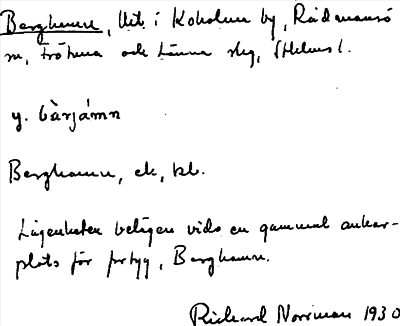 Berghamn, lht. i Koholma by, Rådmansö
sn, Frötuna och Länna skg, Sthlms l.
y. bàrjámn
Berghamn, ek, kb.
Lägenheten belägen vids en gammal ankar-
plats för fartyg, Berghamn.
Richard Norrman 1930